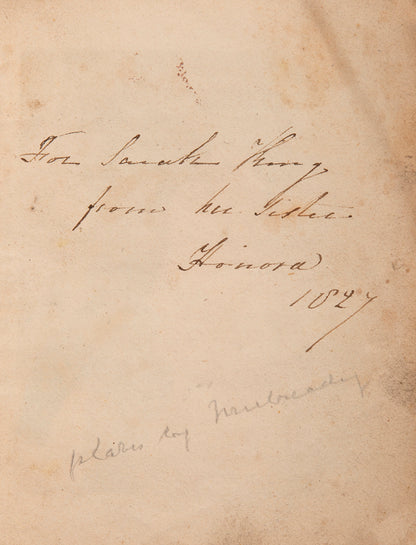 For Sarah King
from her Sister
Honora
1827
plates by Mulready